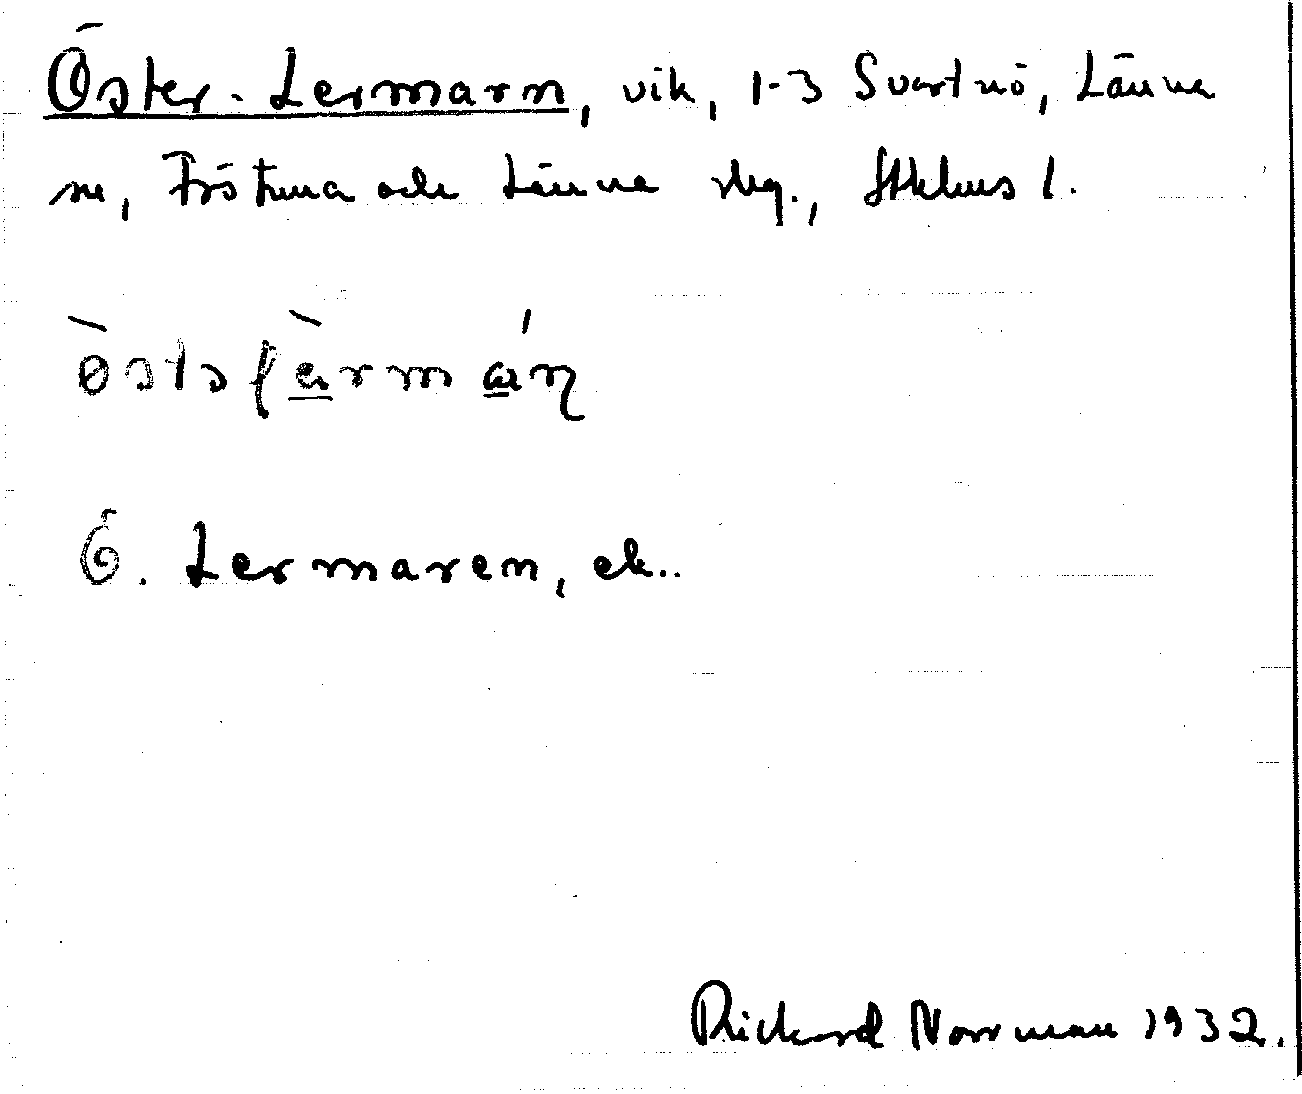 Öster-Lermarn, vik, 1-3 Svartnö, Länna
sn, Frötuna och Länna slg., Sthlms l.
Ö. Lermaren, ek..
Rickard Norrman 1932.